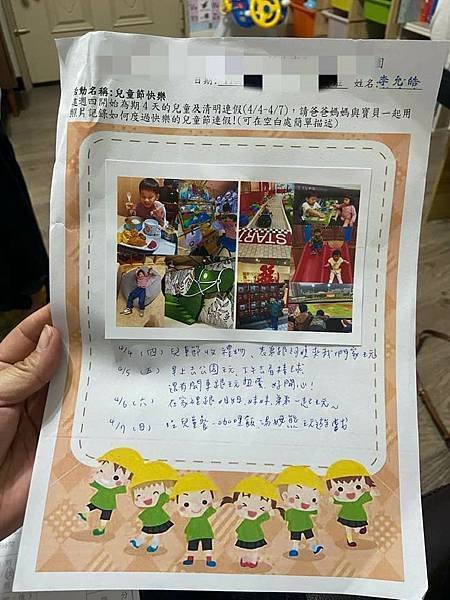 日期:
姓名:李允皓
活動名稱:兒童節快樂
這週四開始為期4天的兒童及清明連假(4/4-4/7),請爸爸媽媽與寶貝一起用
照片記錄如何度過快樂的兒童節連假!(可在空白處簡單描述)
START
4/4 (四) 兒童節收禮物、表弟跟阿姨來我們家玩
4/5 (五) 早上去公園玩、下午去看棒球
還有開車跟玩 好開心!
4/6 (六) 在家裡跟姐姐、妹妹、弟弟一起玩~
4/7 (日) 吃兒童餐-咖哩飯、湯姆熊玩遊戲